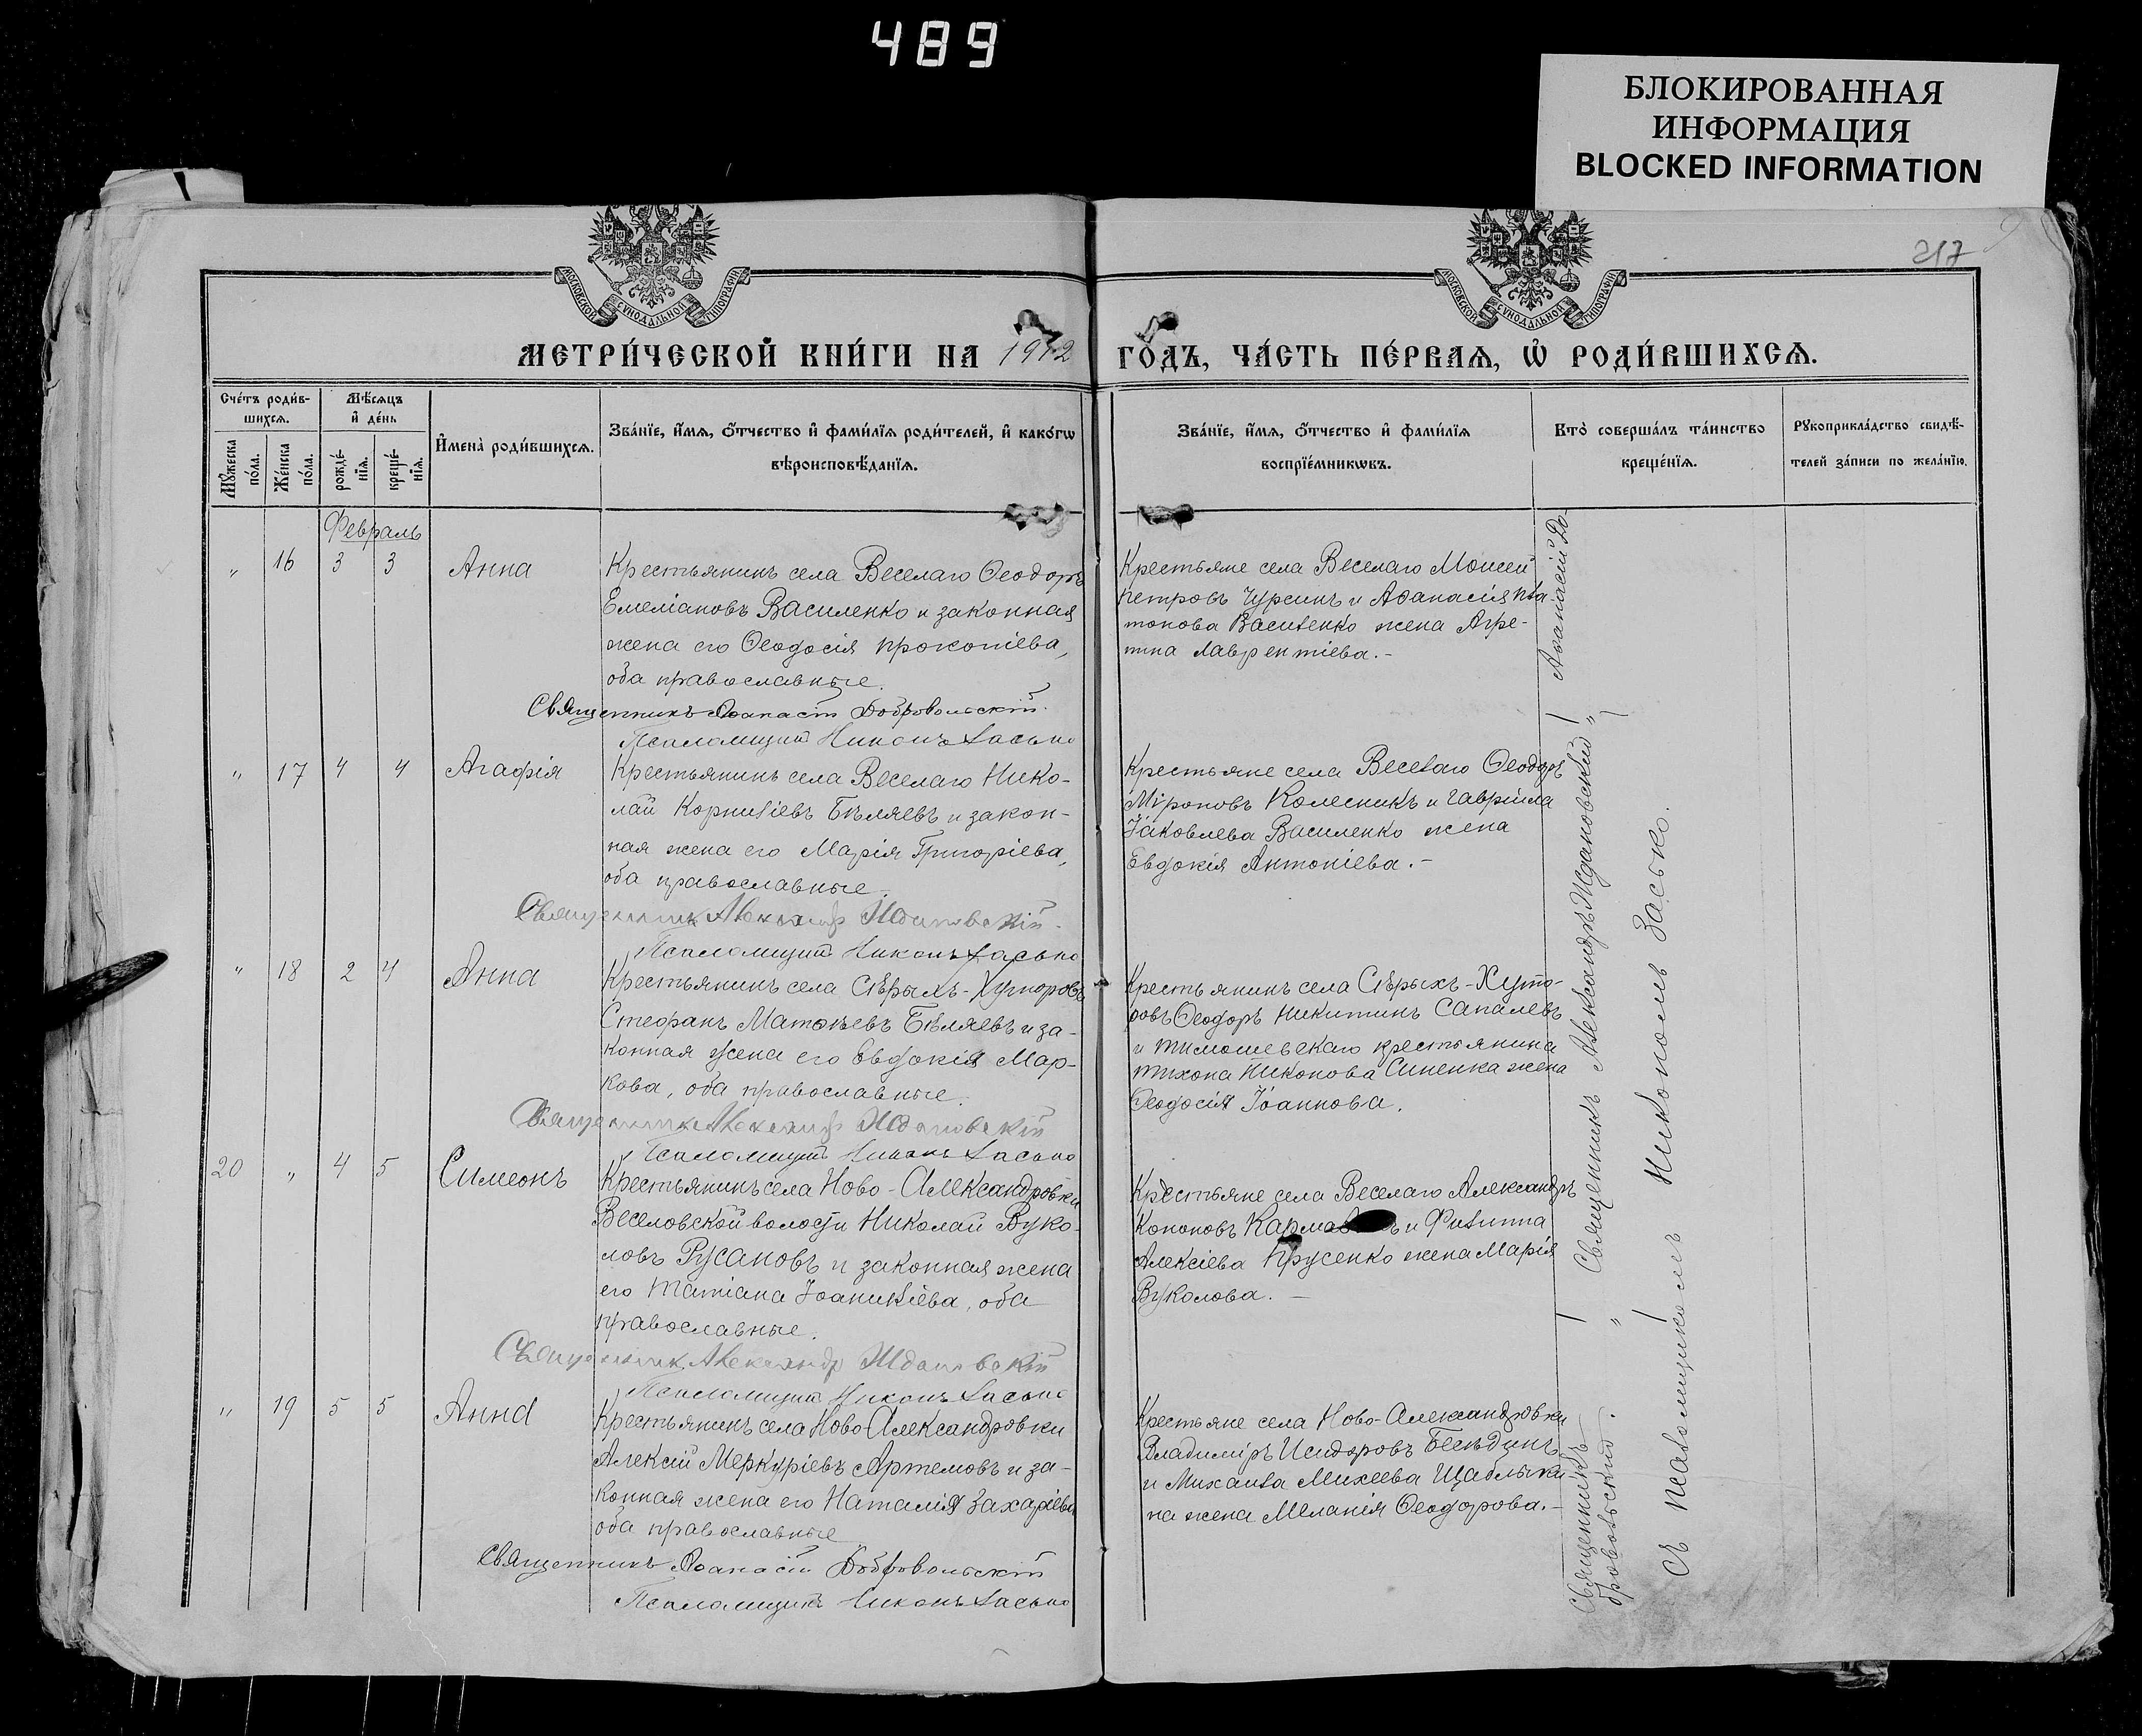 489
БЛОКИРОВАННАЯ
ИНФОРМАЦИЯ
BLOCKED INFORMATION
217
МОСКОВСКОЙ СѴНОДАЛЬНОЙ ТИПОГРАФІИ
МОСКОВСКОЙ СѴНОДАЛЬНОЙ ТИПОГРАФІИ
МЕТРИ́ЧЕСКОЙ КНИ́ГИ НА 1912 ГО́ДЪ, ЧА́СТЬ ПЕ́РВАЯ, Ѡ РОДИ́ВШИХСѦ.
Сче́тъ роди́в-
шихсѧ.
Мꙋжеска
по́ла.
Же́нска
по́ла.
Мѣ́сѧцъ
и҆ де́нь
рожде́-
нїѧ.
креще́-
нїѧ.
И҆мена̀ роди́вшихсѧ.
Зва́нїе, и҆́мѧ, ѻ҆́тчество и҆ фами́лїѧ роди́телей, и҆ како́гѡ
вѣроисповѣ́данїѧ.
Зва́нїе, и҆́мѧ, ѻ҆́тчество и҆ фами́лїѧ
воспрїе́мникѡвъ.
Кто̀ соверша́лъ та́инство
креще́нїѧ.
Рꙋкоприкла́дство свидѣ́-
телей за́писи по жела́нїю.
Февраль
" 16 3 3 Анна
Крестьянинъ села Веселаго Ѳеодоръ
Емеліановъ Василенко и законная
жена его Ѳеодосія Прокопіева,
оба православные.
Священникъ Аѳанасій Добровольскій.
Псаломщикъ Никонъ Засько
Крестьяне села Веселаго Моисей
Петровъ Чурсинъ и Аѳанасія Пла-
тонова Василенко жена Агре-
пина Лаврентіева.-
" 17 4 4 Агафія
Крестьянинъ села Веселаго Нико-
лай Корниліевъ Бѣляевъ и закон-
ная жена его Марія Григоріева,
оба православные.
Священник Александр Ждановскій.
Псаломщикъ Никонъ Засько
Крестьяне села Веселаго Ѳеодоръ
Міроновъ Колесникъ и Гавріила
Іаковлева Василенко жена
Евдокія Антоніева.-
" 18 2 4 Анна
Крестьянинъ села Сѣрыхъ-Хуторовъ
Стефанъ Матѳѣевъ Бѣляевъ и за-
конная жена его Евдокія Мар-
кова, оба православные.
Священник Александр Ждановскій
Псаломщикъ Никонъ Засько
Крестьянинъ села Сѣрыхъ-Хуто-
ровъ Ѳеодоръ Никитинъ Сапалевъ
и Тимошевскаго крестьянина
Тихона Никонова Синенка жена
Ѳеодосія Іоаннова.
20 " 4 5 Симеонъ
Крестьянинъ села Ново-Александровки
Веселовской волости Николай Вуко-
ловъ Русановъ и законная жена
его Татіана Іоаникіева, оба
православные.
Священник Александр Ждановскій
Псаломщикъ Никонъ Засько
Крестьяне села Веселаго Александръ
Кононовъ и Филиппа
Алексіева Прусенко жена Марія
Вуколова.-
" 19 5 5 Анна
Крестьянинъ села Ново-Александровки
Алексій Меркуріевъ Артемовъ и за-
конная жена его Наталія Захаріева
оба православные
Священникъ Аѳанасій Добровольскій
Псаломщикъ Никонъ Засько
Крестьяне села Ново-Александровки
Владиміръ Исидоровъ Бесѣдинъ
и Михаила Михеева Щаблыки-
на жена Меланія Ѳеодорова.-
Священникъ Аѳанасій До-
бровольскій.
Священникъ Александръ Ждановскій
съ псаломщикомъ Никономъ Засько.